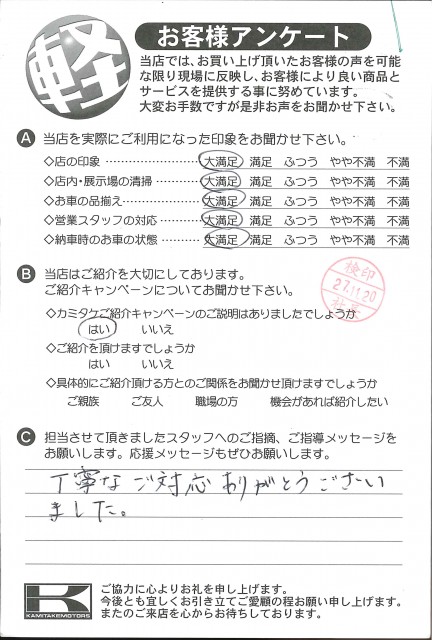 軽
お客様アンケート
当店では、お買い上げ頂いたお客様の声を可能
な限り現場に反映し、お客様により良い商品と
サービスを提供する事に努めています。
大変お手数ですが是非お声をお聞かせ下さい。
A 当店を実際にご利用になった印象をお聞かせ下さい。
◇店の印象 ………………… 大満足 満足 ふつう やや不満 不満
◇店内・展示場の清掃………… 大満足 満足 ふつう やや不満 不満
◇お車の品揃え………………… 大満足 満足 ふつう やや不満 不満
◇営業スタッフの対応………… 大満足 満足 ふつう やや不満 不満
◇納車時のお車の状態………… 大満足 満足 ふつう やや不満 不満
B 当店はご紹介を大切にしております。
ご紹介キャンペーンについてお聞かせ下さい。
検印
27.11.20
社長
◇カミタケご紹介キャンペーンのご説明はありましたでしょうか
はい いいえ
◇ご紹介を頂けますでしょうか
はい いいえ
◇具体的にご紹介頂ける方とのご関係をお聞かせ頂けますでしょうか
ご親族 ご友人 職場の方 機会があれば紹介したい
C 担当させて頂きましたスタッフへのご指摘、ご指導メッセージを
お願いします。応援メッセージもぜひお願いします。
丁寧なご対応ありがとうござい
ました。
K
KAMITAKEMOTORS
ご協力に心よりお礼を申し上げます。
今後とも宜しくお引き立てご愛顧の程お願い申し上げます。
またのご来店を心からお待ちしております。